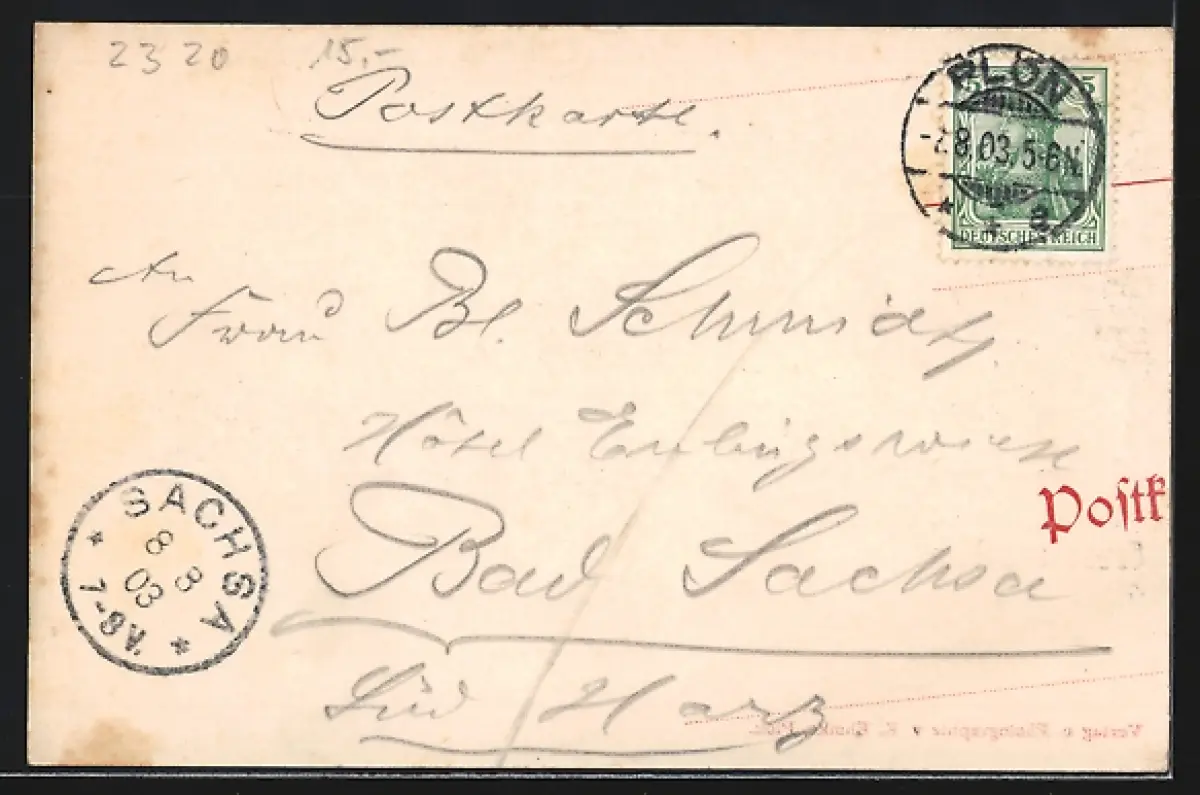 23 20 15.-
Postkarte.
PLÖN
-7.8.03. 5-6 N.
* a
DEUTSCHES REICH
An
Frau Bl. Schmidt,
Hôtel
Bad Sachsa
Süd Harz
Postk
SACHSA
8 8
03
* 7-8V. *
Verlag u. Photographie v